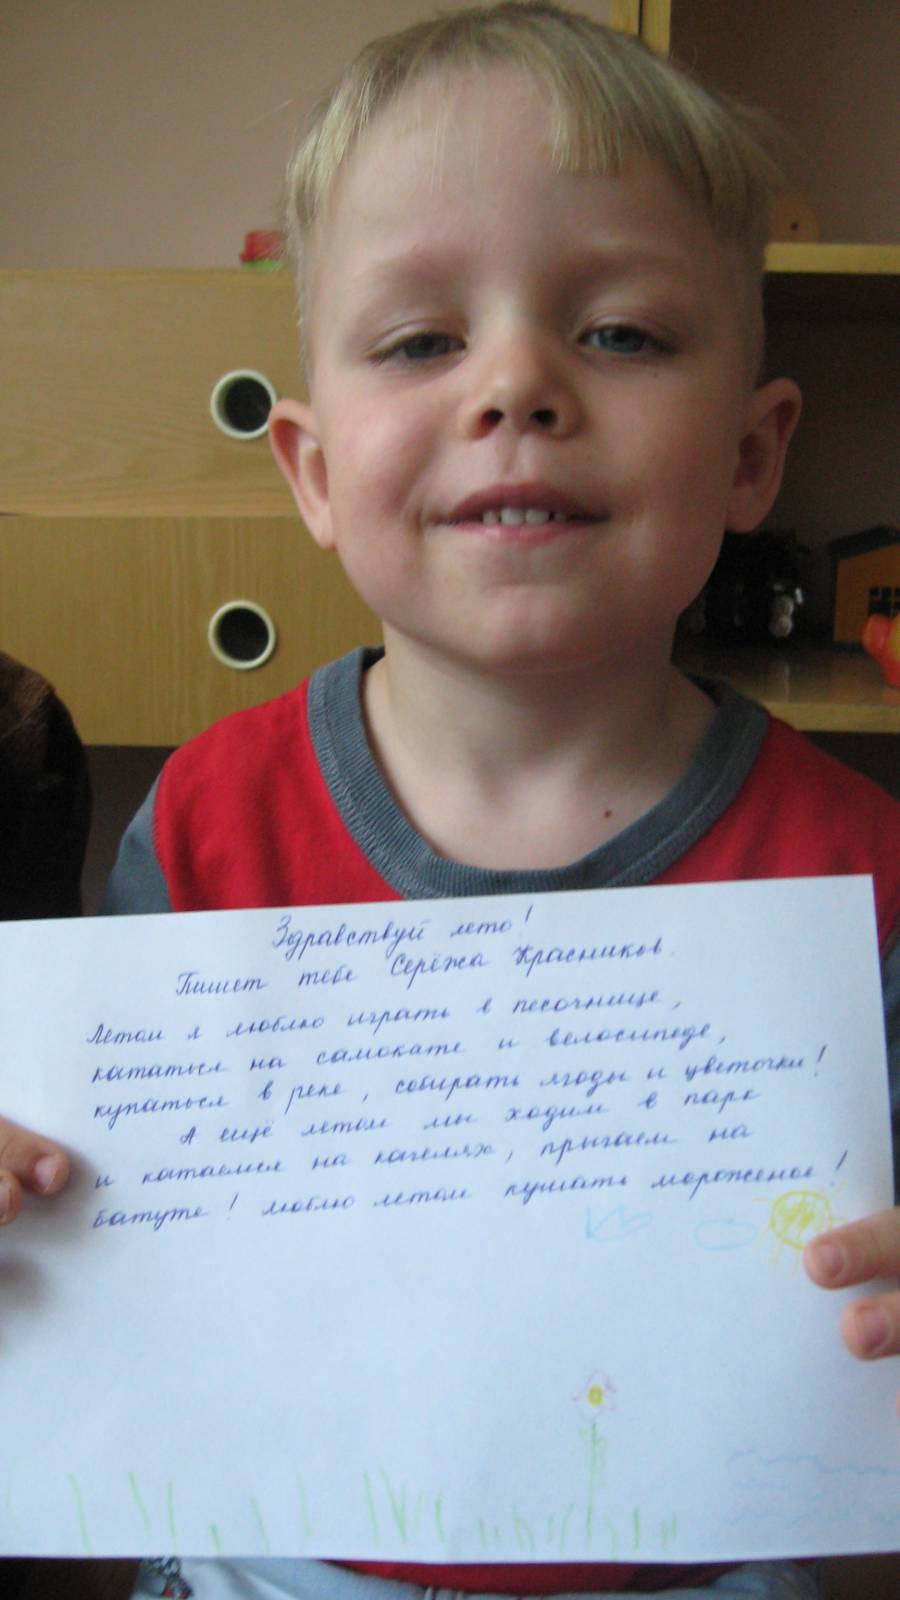 Здравствуй лето!
Пишет тебе Серёжа Красников.
Летом я люблю играть в песочнице,
кататься на самокате и велосипеде,
купаться в реке, собирать ягоды и цветочки!
А ещё летом мы ходим в парк
и катаемся на качелях, прыгаем на
батуте! люблю летом кушать мороженое!